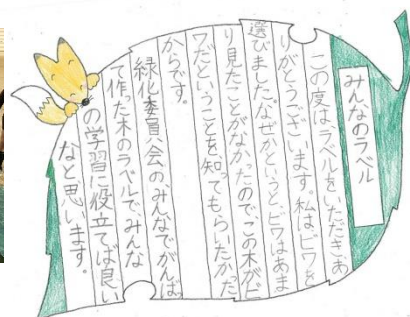 みんなのラベル
この度はラベルをいただきあ
りがとうございます。私はビワを
選びました。なぜかというと、ビワはあま
り見たことがなかったので、この木がビ
ワだということを知ってもらいたかった
からです。
緑化委員会のみんなでがんば
って作った木のラベルで、みんな
の学習に役立てば良い
なと思います。